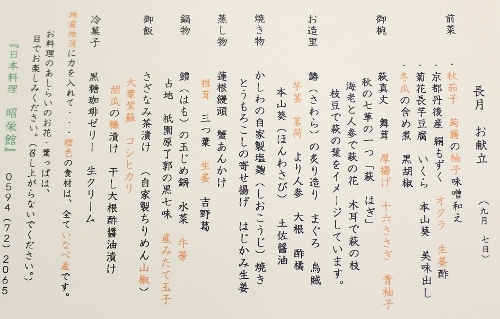 長月 お献立
(九月 七日)
前菜 ・秋茄子 蒟蒻の柚子味噌和え
・京都丹後産 絹もずく オクラ 生姜酢
菊花長芋豆腐 いくら 本山葵 美味出し
・冬瓜の含め煮 黒胡椒
御椀 萩真丈 舞茸 厚揚げ 十六ささぎ 青柚子
秋の七草の一つ「萩 はぎ」
海老と人参で萩の花 木耳で萩の枝
枝豆で萩の葉をイメージしています。
お造里 鰆(さわら)の炙り造り まぐろ 烏賊
芋茎 茗荷 より人参 大根 酢橘
本山葵(ほんわさび) 土佐醤油
焼き物 かしわの自家製塩麹(しおこうじ)焼き
とうもろこしの寄せ揚げ はじかみ生姜
蒸し物 蓮根饅頭 蟹あんかけ
椎茸 三つ葉 生姜 吉野葛
鍋物 鱧(はも)の玉じめ鍋 水菜 牛蒡
占地 祇園原了郭の黒七味 産みたて玉子
御飯 さざなみ茶漬け (自家製ちりめん山椒)
大葉紫蘇 コシヒカリ
胡瓜の糠漬け 干し大根酢醤油漬け
冷菓子 黒糖珈琲ゼリー 生クリーム
地産地消に力を入れて・・橙色の食材は、全ていなべ産です。
お料理のあしらいのお花・葉っぱは、
目でお楽しみください。(召し上がらないでください。)
『日本料理 昭栄館』 0594(72)2065